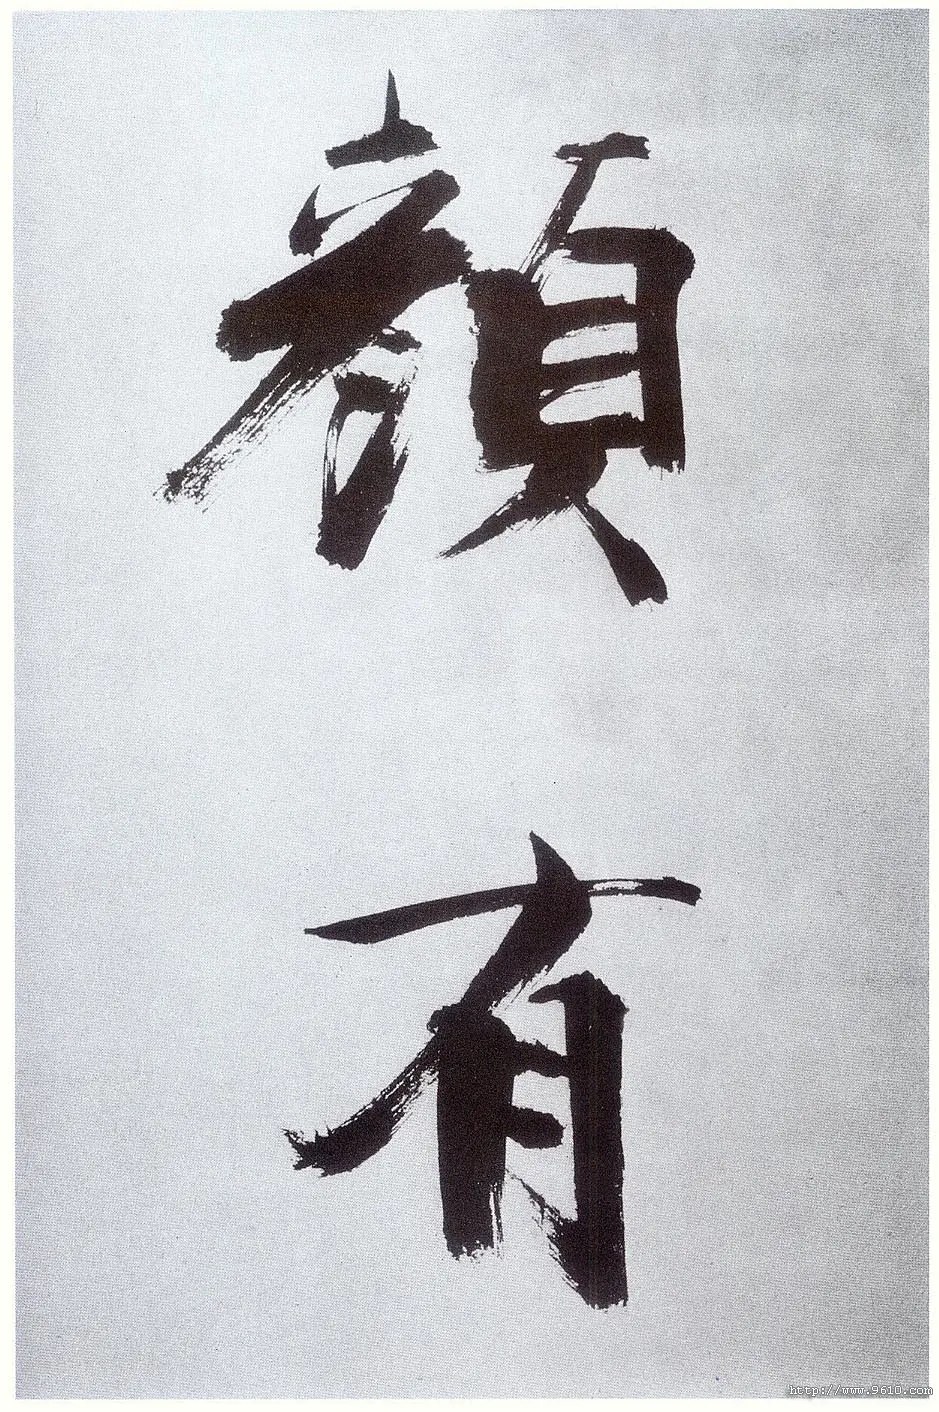 顔
有
http://www.9610.com